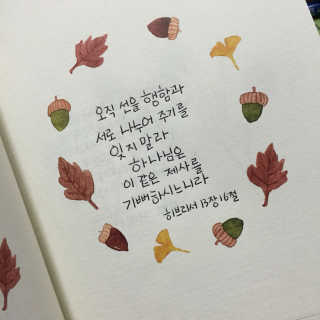 오직 선을 행함과
서로 나누어 주기를
잊지 말라
하나님은
이 같은 제사를
기뻐하시느니라
히브리서 13장 16절